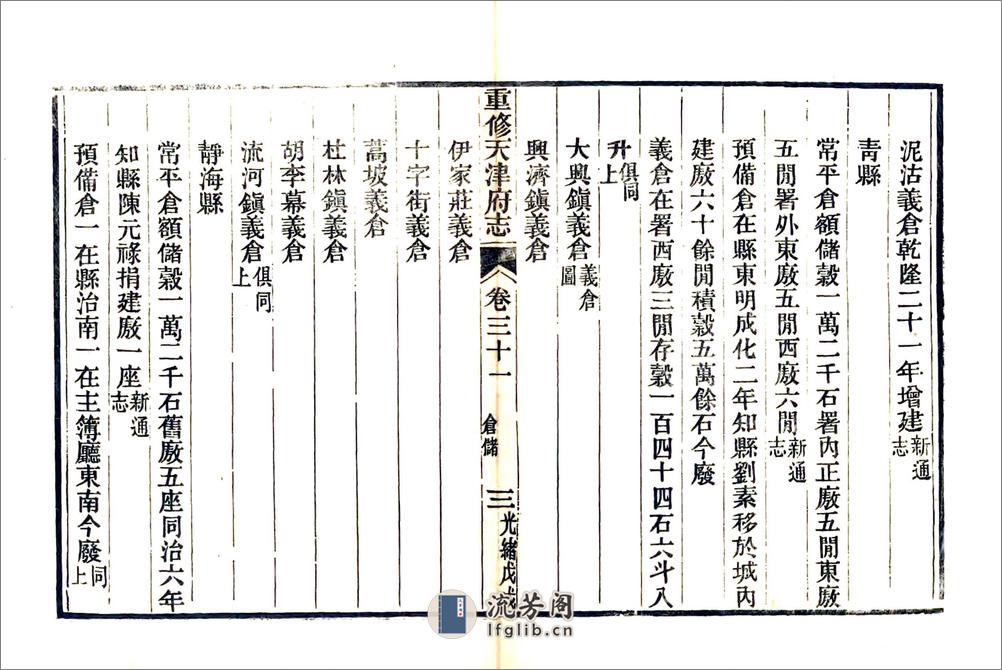 泥沽義倉乾隆二十一年增建新通志
青縣
常平倉額儲穀一萬二千石署內正廒五閒東廒
五閒署外東廒五閒西廒六閒新通志
預備倉在縣東明成化二年知縣劉素移於城內
建廒六十餘閒積穀五萬餘石今廢
義倉在署西廒三閒存穀一百四十四石六斗八
升俱同上
大興鎮義倉義倉圖
興濟鎮義倉
重修天津府志 卷三十一 倉儲 三 光緒戊戌
伊家莊義倉
十字街義倉
蒿坡義倉
杜林鎮義倉
胡李幕義倉
流河鎮義倉俱同上
靜海縣
常平倉額儲穀一萬二千石舊廒五座同治六年
知縣陳元祿捐建廒一座新通志
預備倉一在縣治南一在主簿廳東南今廢同上
流芳阁
lfglib.cn